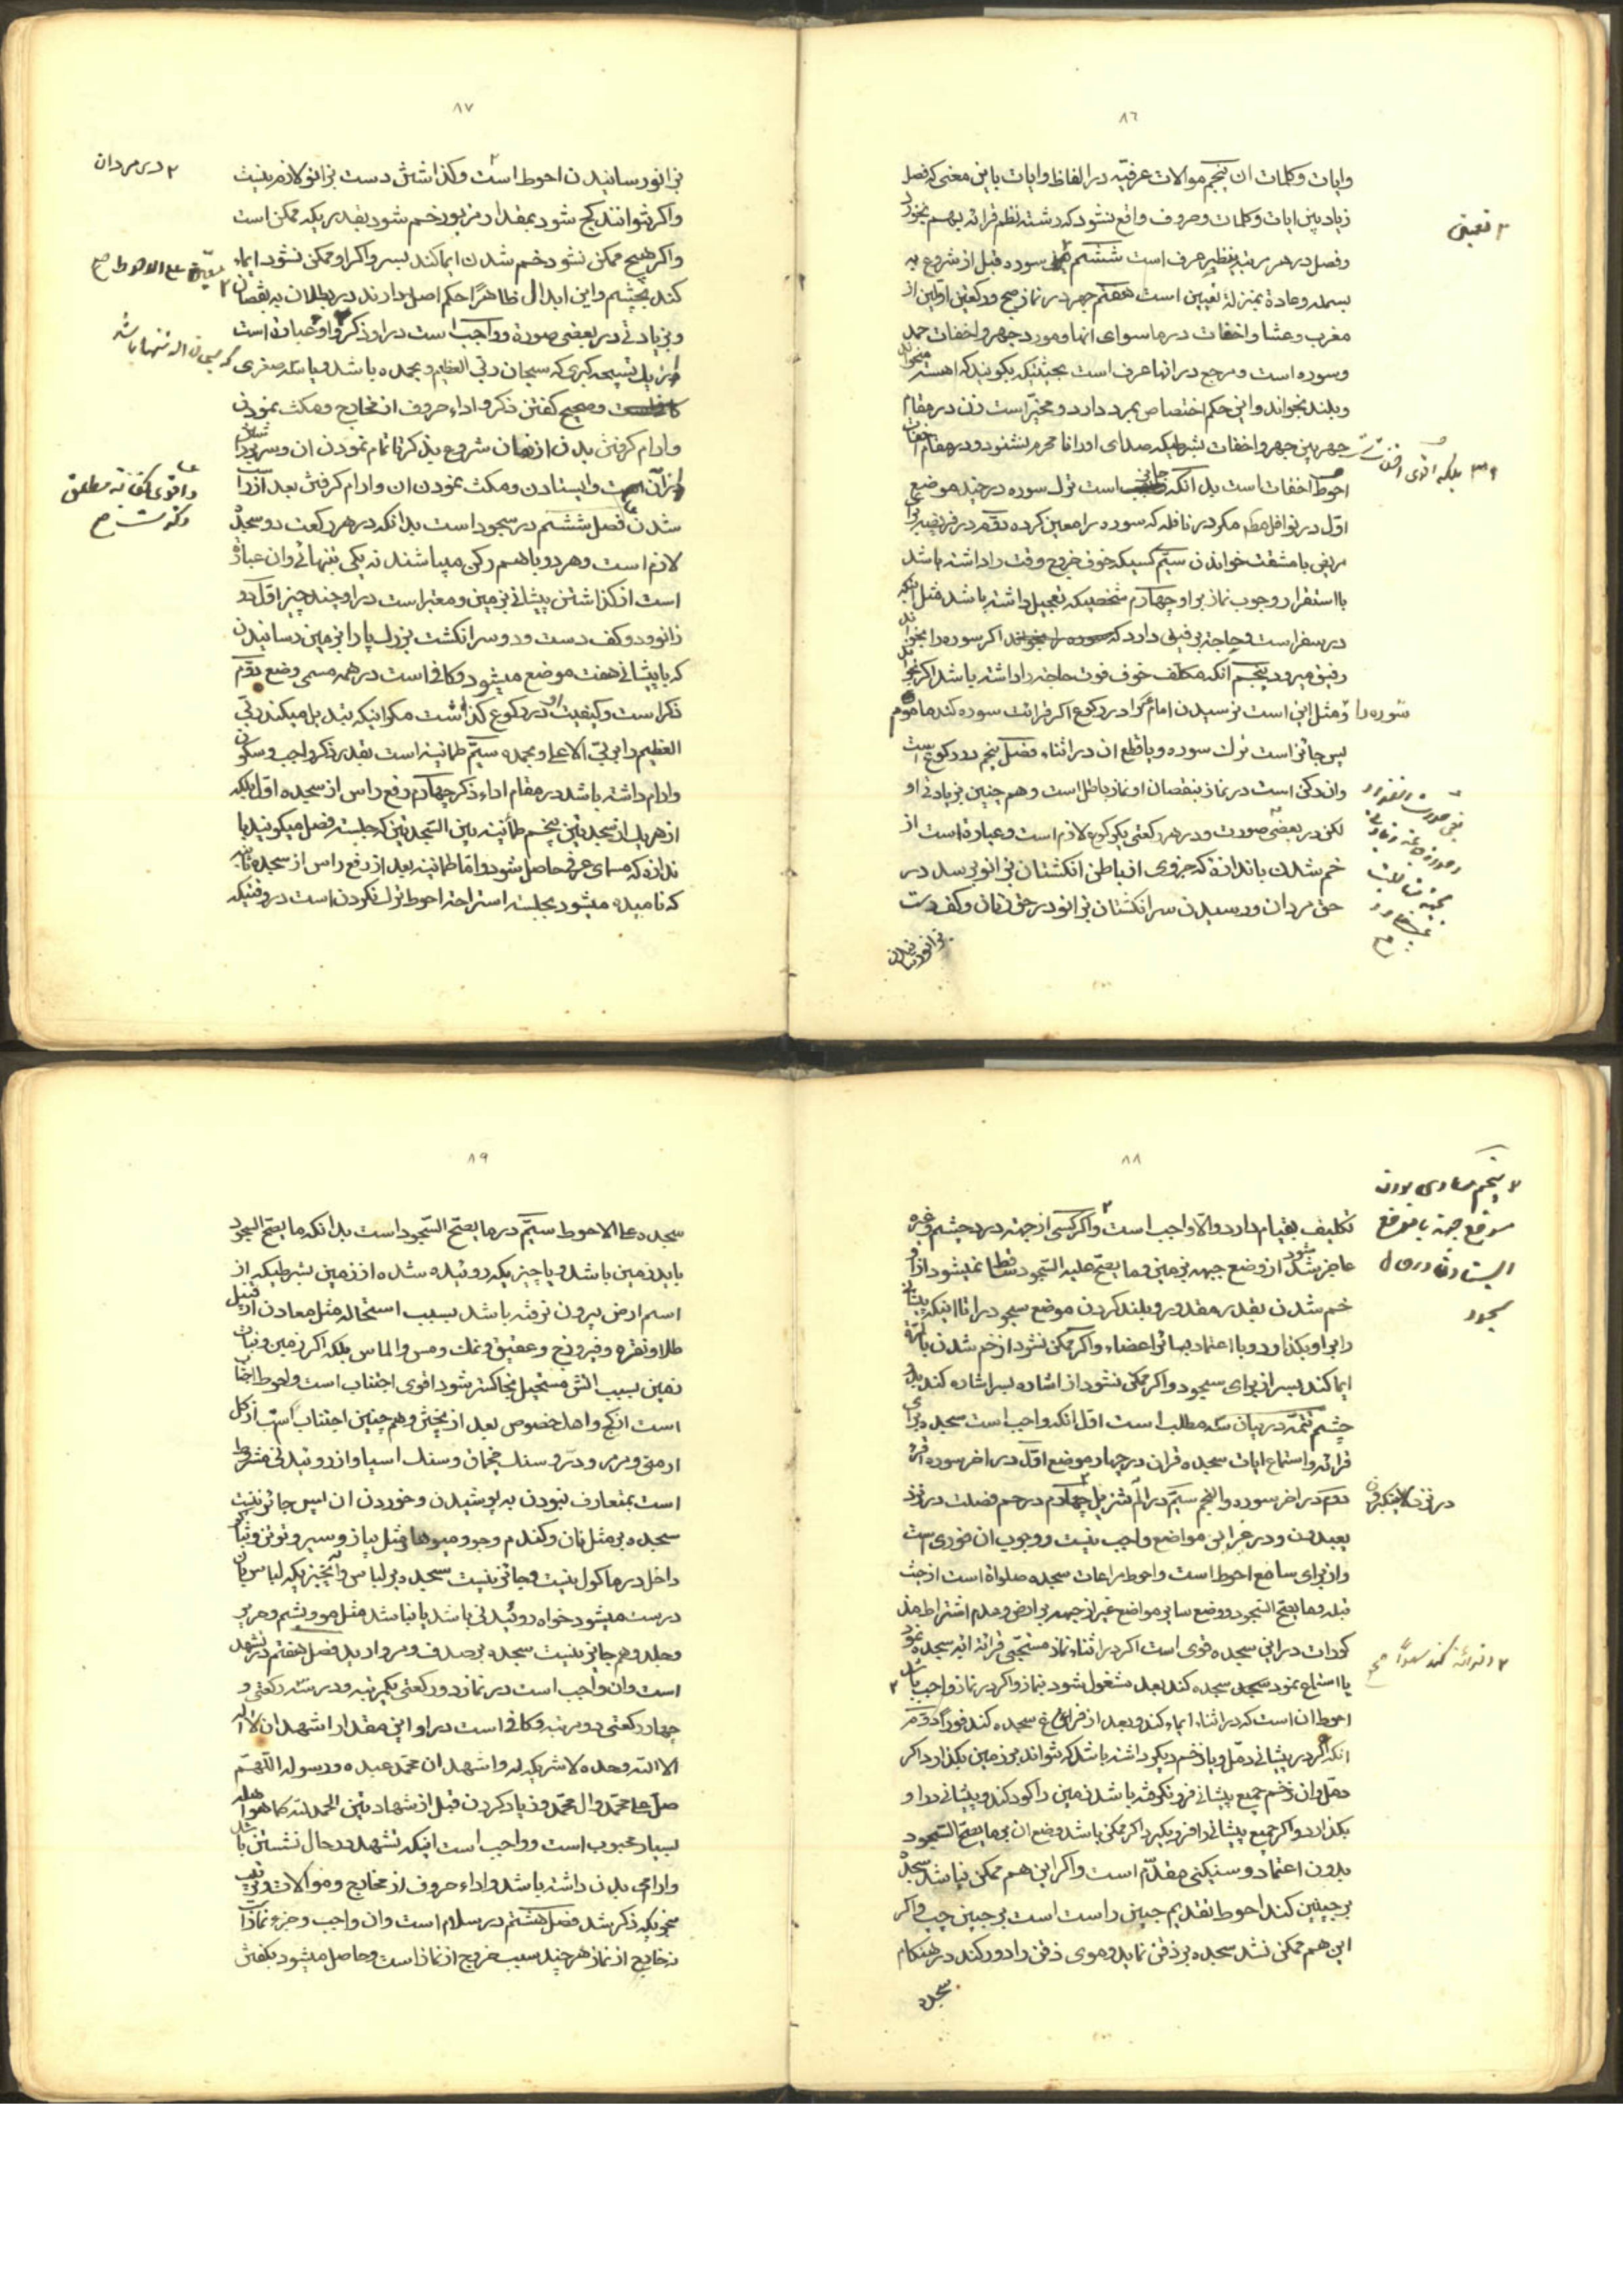 ٨٦
وایات وکلمات ان پنجم موالات عرفیّه در الفاظ وایات باین معنی که فصل
زیاد بین ایات وکلمات وحروف واقع نشود که رشته نظم قرائه بهم بخورد
وفصل در هر مرتبه بنظیر عرف است ششم سوره قبل از شروع به
بسمله وعادة بمنزلۀ تعیین است هفتم جهر در نماز صبح ورکعتین اوّلین از
مغرب وعشا واخفات در ماسوای انها ومورد جهر واخفات حمد
وسوره است ومرجع در انها عرف است بحیثیتیکه بکویند که اهسته میخواند
وبلند بخواند واین حکم اختصاص بمرد دارد ومخیّر است زن در مقام
جهر بین جهر واخفات بشرطیکه صدای اورا نامحرم نشنود ودر مقام اخفات
احوط اخفات است بدانکه جایز است ترک سوره در چند موضع
اوّل در نوافل مکر در نافله که سوره را معین کرده دوّم در فریضه برای
مریض بامشقت خواندن سیّم کسیکه خوف خروج وقت را داشته باشد
با استقرار وجوب نماز بر او چهارم شخصیکه تعجیل داشته باشد مثل اینکه
در سفر است وحاجتی دارد که اکر سوره را بخواند
رفیق میرود پنجم انکه مکلف خوف فوت حاجته را داشته باشد اکر بخواند
سوره را ومثل این است نرسیدن امام را در رکوع اکر قرائت سوره کند ماموم
پس جایز است ترک سوره ویا قطع ان در اثناء فصل پنجم در رکوع است
وان رکن است در نماز بنقصان او نماز باطل است وهم چنین بزیادتی او
لکن در بعضی صورت ودر هر رکعتی یکرکوع لازم است وعبارة است از
خم شدن باندازۀ که جزوی از باطن انکشتان بزانو برسد در
حق مردان ورسیدن سر انکشتان بزانو در حق زنان وکف دست
بزانو رسانیدن
٨٧
بزانو رسانیدن احوط است وکذاشتن دست بزانو لازم نیست
٢ در مردان
واکر نتوانند کج شود بمقدار مزبور خم شود بقدریکه ممکن است
واکر هیچ ممکن نشود خم شدن ایما کند بسر واکر او ممکن نشود ایماء
کند بچشم واین ابدال ظاهرًا حکم اصل دارند در بطلان به نقصان
وبزیادتی در بعضی صورة وواجب است در او ذکر واو عبارة است
از یک تسبیحه کبری که سبحان ربّی العظیم وبحمده باشد ویا سه صغری
وصحیح کفتن ذکر واداء حروف از مخارج ومکث نمودن
وارام کرفتن بدن از زمان شروع بذکر تا تمام نمودن ان وسر برداشتن
از آن وایستادن ومکث نمودن ان وارام کرفتن بعد از راست
شدن فصل ششم در سجود است بدانکه در هر رکعت دو سجده
لازم است وهر دو باهم رکن میباشند نه یکی بتنهائی وان عبارة
است از کذاشتن پیشانی بزمین ومعتبر است در او چند چیز اوّل دو
زانو ودو کف دست ودو سر انکشت بزرک پا را بزمین رسانیدن
که با پیشانی هفت موضع میشود وکافی است در همه مسمی وضع دوّم
ذکر است وکیفیت او در رکوع کذشت مکر اینکه تبدیل میکند ربّی
العظیم را بربّی الاعلی وبحمده سیّم طمانینه است بقدر ذکر واجب وسکون
وارام داشته باشد در مقام اداء ذکر چهارم رفع راس از سجده اوّل بلکه
از هر یک از سجدتین پنجم طمأنینه بین السّجدتین که جلسته فصل میکویند با
ندازه که مسمای عرفی حاصل شود واما طمانینه بعد از رفع راس از سجده ثانیه
که نامیده میشود بجلسته استراحته احوط ترک نکردن است در وقتیکه
٨٨
تکلیف بقیام دارد والّا واجب است واکر کسی از جهته درد چشم وغیره
عاجز شود از وضع جبهه بزمین وما یصحّ علیه السّجود ساقط نمیشود از او
خم شدن بقدر مقدور وبلند کردن موضع سجود را تا اینکه پیشانی
را بر او بکذارد وبا اعتماد بسائر اعضاء واکر ممکن نشود از خم شدن
ایما کند بسر از برای سجود واکر ممکن نشود از اشاره بسر اشاره کند بدو
چشم تتمّه در بیان سه مطلب است اوّل انکه واجب است سجده برای
قرائه واستماع ایات سجده قران در چهار موضع اوّل در اخر سوره اقرء
دوّم در اخر سوره والنجم سیّم در الم تنزیل چهارم در حم فصلت در نزد
یعبدون ودر غیر این مواضع واجب نیست ووجوب ان فوری است
واز برای سامع احوط است واحوط مراعات سجده صلواة است از جهت
قبله وما یصحّ السّجود ووضع سایر مواضع غیر از جبهه بر ارض وعدم اشتراط
کورات در این سجده قوی است اکر در اثناء نماز مستحبّی قرائه ایه سجده نمود
یا استماع نمود سجده کند بعد مشغول شود بنماز واکر در نماز واجب باشد
احوط ان است که در اثناء ایماء کند وبعد از فراغ سجده کند فورًا دوّم
انکه اکر در پیشانی دمّل ویا زخم دیکر داشته باشد که نتواند بر زمین بکذارد اکر
دمّل وان زخم جمیع پیشانی فرو نکرفته باشد زمین را کود کند وپیشانی را او
بکذارد واکر جمیع پیشانی را فرو بکیرد اکر ممکن باشد وضع ان بر ما یصحّ السّجود
بدون اعتماد وسنکینی مقدّم است واکر این هم ممکن نباشد سجده
بر جبینین کند احوط تقدیم جبین راست است بر جبین چپ واکر
این هم ممکن نشد سجده بر ذقن نماید وموی ذقن را دور کند در هنکام
سجده
٨٩
سجده علی الاحوط سیّم در ما یصحّ السّجود است بدانکه ما یصحّ السجود
باید زمین باشد ویا چیزیکه روئیده شده از زمین بشرطیکه از
اسم ارض بیرون نرفته باشد بسبب استحاله مثل معادن از قبیل
طلا ونقره وفیروزج وعقیق ونمک ومس والماس بلکه اکر زمین ونبات
زمین بسبب اتش مستحیل بخاکستر شود اقوی اجتناب است واحوط اجتناب
است از کج واهک خصوص بعد از پختن وهم چنین اجتناب است از کل
ارمنی ومرمر ودرّ وسنک چخماق وسنک اسیا واز روئیدنی مشروط
است بمتعارف نبودن به پوشیدن وخوردن ان پس جائز نیست
سجده بر مثل نان وکندم وجو ومیوها مثل پیاز وسیر
داخل در ماکول نیست وجائز نیست سجده بر لباس وآنچیزیکه لباس از ان
درست میشود خواه روئیدنی باشد یا نباشد مثل مو وپشم وحریر
وجلد وهم جایز نیست سجده بر صدف ومروارید فصل هفتم در تشهد
است وان واجب است در نماز دو رکعتی یکمرتبه ودر سه رکعتی و
چهار رکعتی دو مرتبه وکافی است در او این مقدار اشهد ان لا اله
الا الله وحده لا شریک له واشهد ان محمّدً عبده ورسوله اللّهمّ
صلّ علی محمّد وال محمّد وزیاد کردن قبل از شهادتین الحمد لله کما هو اهله
بسیار محبوب است وواجب است اینکه تشهد در حال نشستن باشد
وارامی بدن داشته باشد واداء حروف از مخارج وموالات وترتیب
بنحویکه ذکر شد فصل هشتم در سلام است وان واجب وجزو نماز است
نه خارج از نماز هر چند سبب خروج از نماز است وحاصل میشود بکفتن